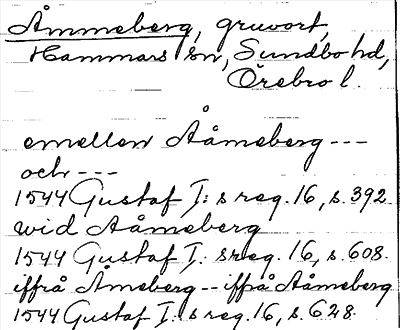 Åmmeberg, gruvort,
Hammars sn, Sundbo hd,
Örebro l.
emellan Ååmeberg ---
och ---
1544 Gustaf I:s reg. 16, s. 392.
wid Aåmeberg
1544 Gustaf I:s reg. 16, s. 608.
iffrå Åmeberg -- iffrå Aåmeberg
1544 Gustaf I:s reg. 16, s. 628.